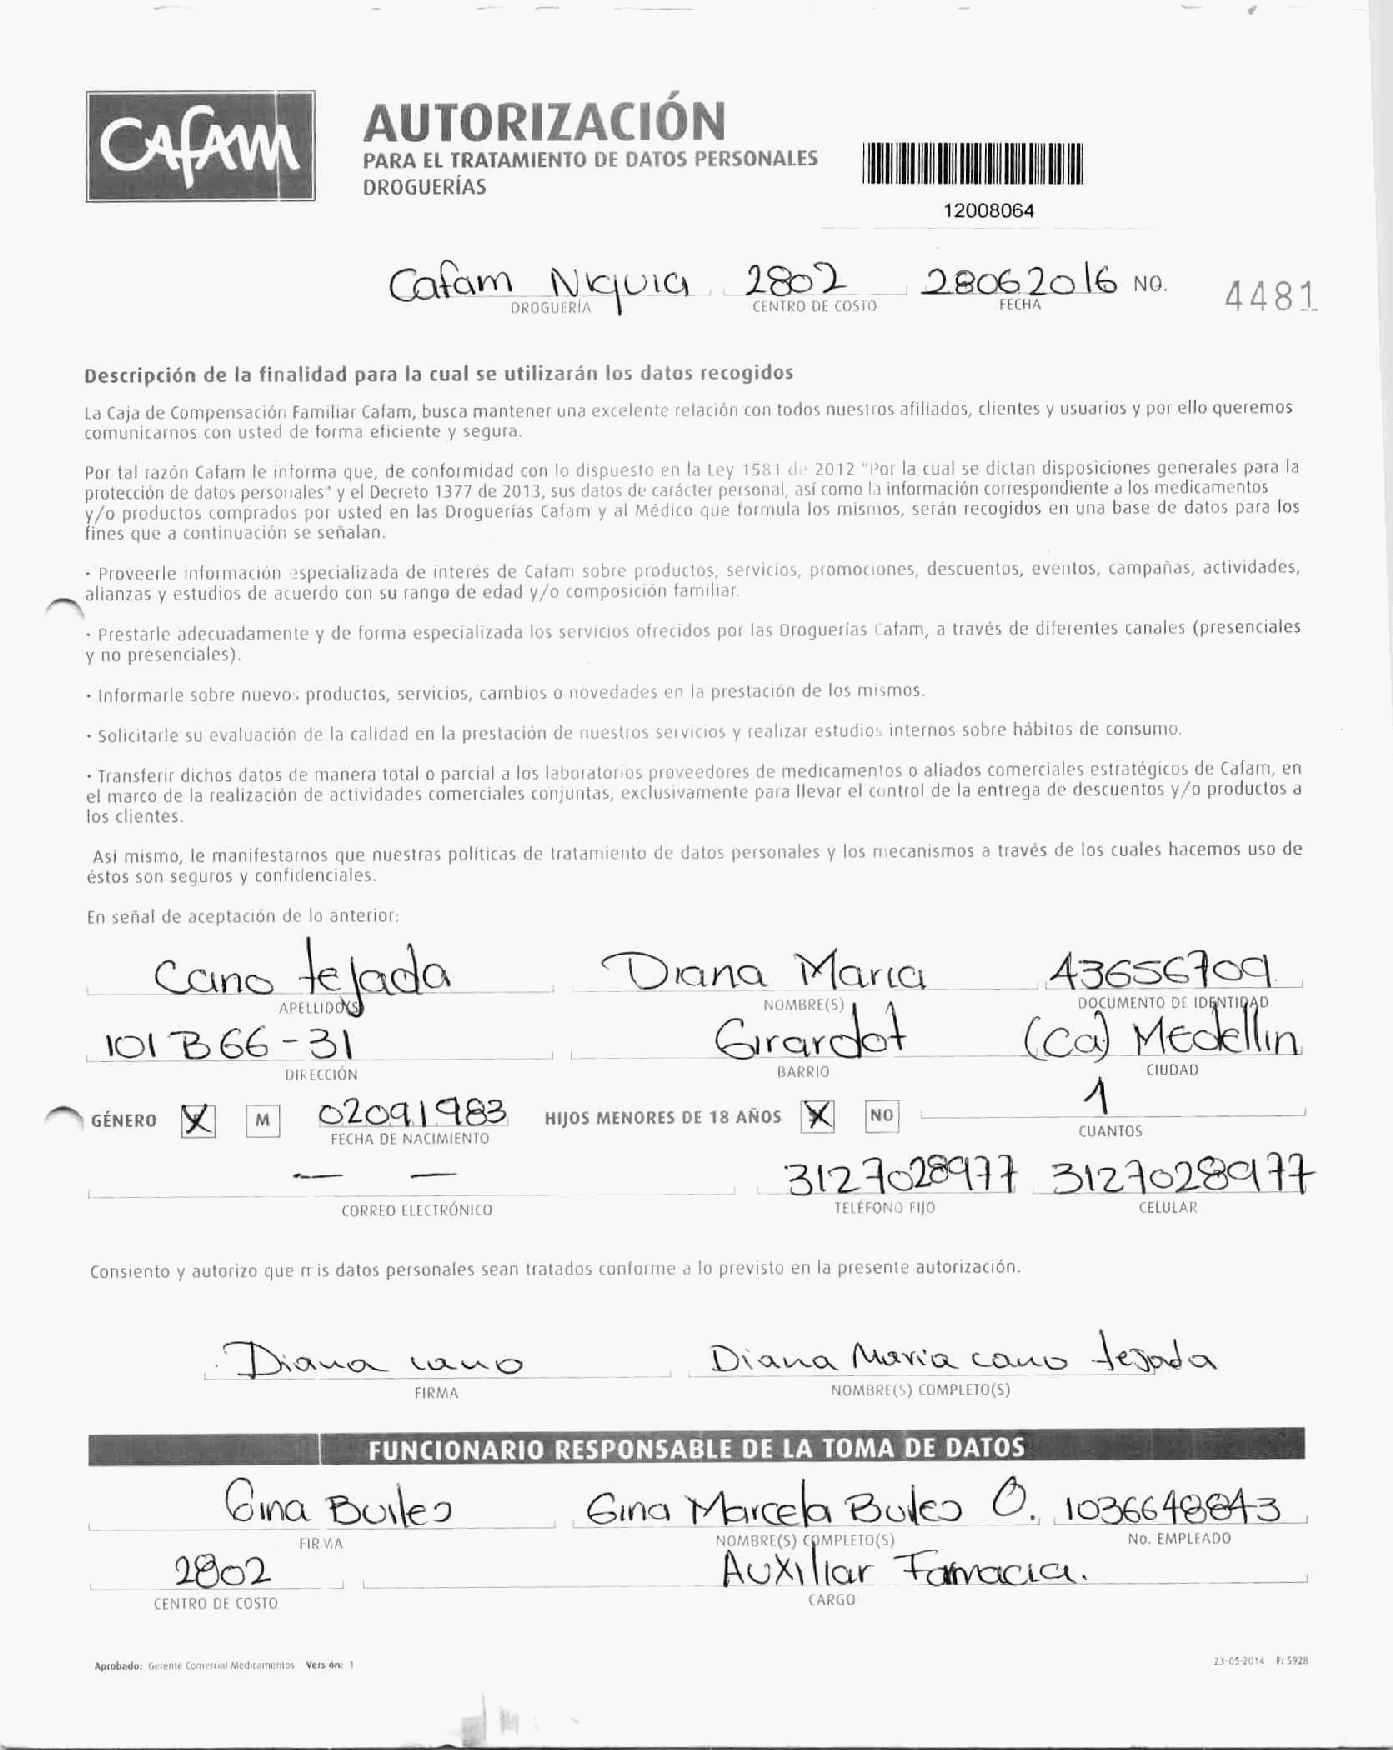 CAFAM
AUTORIZACIÓN
PARA EL TRATAMIENTO DE DATOS PERSONALES
DROGUERÍAS
12008064
Cafam Niquia 2802 28062016 NO. 4481
DROGUERÍA CENTRO DE COSTO FECHA
Descripción de la finalidad para la cual se utilizarán los datos recogidos
La Caja de Compensación Familiar Cafam, busca mantener una excelente relación con todos nuestros afiliados, clientes y usuarios y por ello queremos
comunicarnos con usted de forma eficiente y segura.
Por tal razón Cafam le informa que, de conformidad con lo dispuesto en la Ley 1581 de 2012 "Por la cual se dictan disposiciones generales para la
protección de datos personales" y el Decreto 1377 de 2013, sus datos de carácter personal, así como la información correspondiente a los medicamentos
y/o productos comprados por usted en las Droguerías Cafam y al Médico que formula los mismos, serán recogidos en una base de datos para los
fines que a continuación se señalan.
- Proveerle información especializada de interés de Cafam sobre productos, servicios, promociones, descuentos, eventos, campañas, actividades,
alianzas y estudios de acuerdo con su rango de edad y/o composición familiar.
- Prestarle adecuadamente y de forma especializada los servicios ofrecidos por las Droguerías Cafam, a través de diferentes canales (presenciales
y no presenciales).
- Informarle sobre nuevos productos, servicios, cambios o novedades en la prestación de los mismos.
- Solicitarle su evaluación de la calidad en la prestación de nuestros servicios y realizar estudios internos sobre hábitos de consumo.
- Transferir dichos datos de manera total o parcial a los laboratorios proveedores de medicamentos o aliados comerciales estratégicos de Cafam, en
el marco de la realización de actividades comerciales conjuntas, exclusivamente para llevar el control de la entrega de descuentos y/o productos a
los clientes.
Así mismo, le manifestamos que nuestras políticas de tratamiento de datos personales y los mecanismos a través de los cuales hacemos uso de
éstos son seguros y confidenciales.
En señal de aceptación de lo anterior:
Cano tejada Diana Maria 43656709
APELLIDO(S) NOMBRE(S) DOCUMENTO DE IDENTIDAD
101 B 66 - 31 Girardot (Ca) Medellin
DIRECCIÓN BARRIO CIUDAD
GÉNERO X M 02091983 HIJOS MENORES DE 18 AÑOS X NO 1
FECHA DE NACIMIENTO CUANTOS
— — 3127028977 3127028977
CORREO ELECTRÓNICO TELÉFONO FIJO CELULAR
Consiento y autorizo que mis datos personales sean tratados conforme a lo previsto en la presente autorización.
Diana cano Diana Maria cano tejada
FIRMA NOMBRE(S) COMPLETO(S)
FUNCIONARIO RESPONSABLE DE LA TOMA DE DATOS
Gina Builes Gina Marcela Builes O. 1036648843
FIRMA NOMBRE(S) COMPLETO(S) No. EMPLEADO
2802 Auxiliar Farmacia.
CENTRO DE COSTO CARGO
Aprobado: Gerente Comercial Medicamentos Versión: 1 23-05-2014 F: 5928